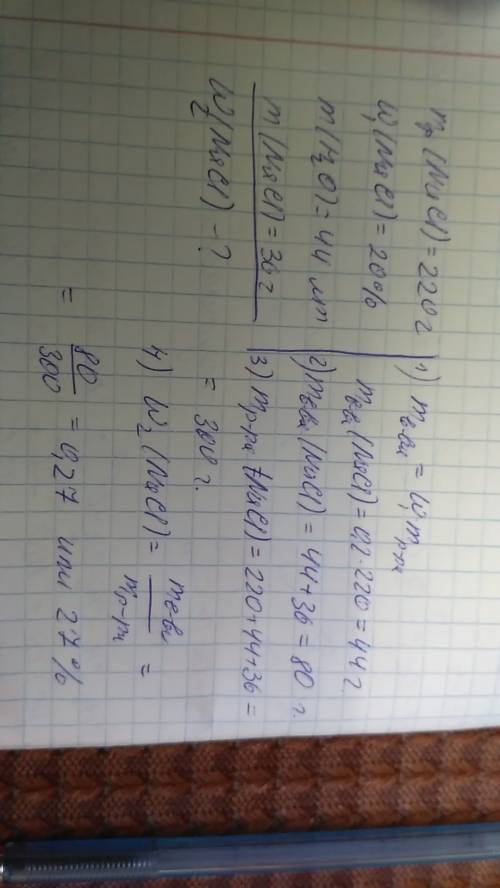 mр (NaCl) = 220 г
W₁ (NaCl) = 20%
m (H₂O) = 44 мл
m (NaCl) = 36 г
W₂ (NaCl) - ?
1) mв-ва = W₁mр-ра
mв-ва (NaCl) = 0,2·220 = 44 г.
2) mв-ва (NaCl) = 44+36 = 80 г.
3) mр-ра (NaCl) = 220+44+36 =
= 300 г.
4) W₂ (NaCl) = mв-ва / mр-ра =
= 80/300 = 0,27 или 27%